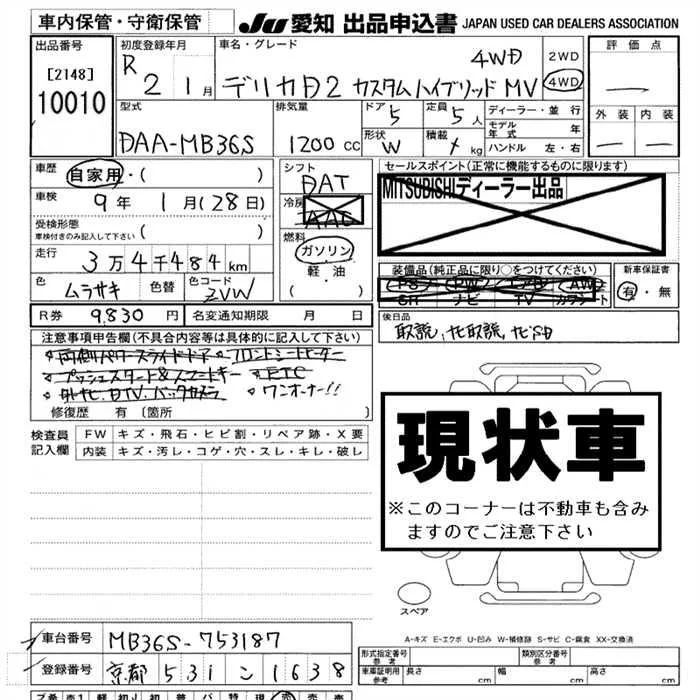 車内保管・守衛保管 JU 愛知 出品申込書 JAPAN USED CAR DEALERS ASSOCIATION
出品番号 初度登録年月 車名・グレード 評価点
[2148] R 2 1月 デリカD2 カスタムハイブリッド MV 4WD 2WD 4WD
10010 外装 内装
型式 排気量 ドア 定員 ディーラー・並行
DAA-MB36S 1200 CC 5 5人 モデル年式
形状 積載 ハンドル 左・右
W kg
車歴 自家用・( ) シフト セールスポイント(正常に機能するものに限ります)
DAT
車検 9年 1月(28日) 冷房 AAC MITSUBISHIディーラー出品
受検形態 ( )
車検付きのみ記入して下さい
燃料
走行 3万4千484km ガソリン・軽油 装備品(純正品に限り○をつけてください) 新車保証書
色 ムラサキ 色替 色コード ZVW ( ) PS PW エアB AW 有・無
SR ナビ TV カワシート
R券 9,830円 名変通知期限 月 日 後日品
取説,ナビ取説,ナビSD
注意事項申告欄(不具合内容等は具体的に記入して下さい)
両側パワースライドドア フロントシートヒーター
プッシュスタート&スマートキー ETC
外ナビ.DTV.バックカメラ ワンオーナー!!
修復歴 有(箇所 )
検査員記入欄 FW キズ・飛石・ヒビ割・リペア跡・X要
内装 キズ・汚レ・コゲ・穴・スレ・キレ・破レ
現状車
※このコーナーは不動車も含み
ますのでご注意下さい
スペア
A-キズ E-エクボ U-凹み W-補修跡 S-サビ C-腐食 XX-交換済
車台番号 MB36S-753187
登録番号 京都 531 ニ 1638
形式指定番号 参考 類別区分番号 参考
車庫証明用 参考 長さ 幅 高さ